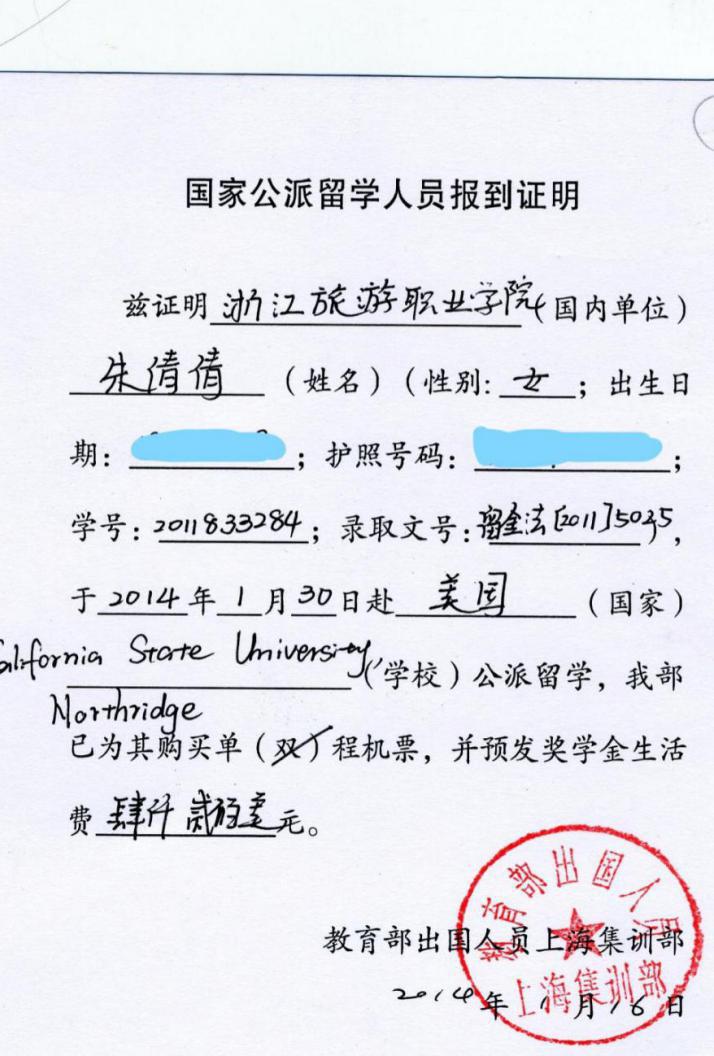 国家公派留学人员报到证明
兹证明 浙江旅游职业学院 (国内单位)
朱倩倩 (姓名) (性别: 女 ; 出生日
期: ; 护照号码: ;
学号: 2011833284 ; 录取文号: 留金法[2011]5035,
于 2014 年 1 月 30 日赴 美国 (国家)
California State University, (学校) 公派留学, 我部
Northridge
已为其购买单 (双) 程机票, 并预发奖学金生活
费 肆仟贰佰 元。
教育部出国人员上海集训部
2014年1月16日
教育部出国人员
上海集训部